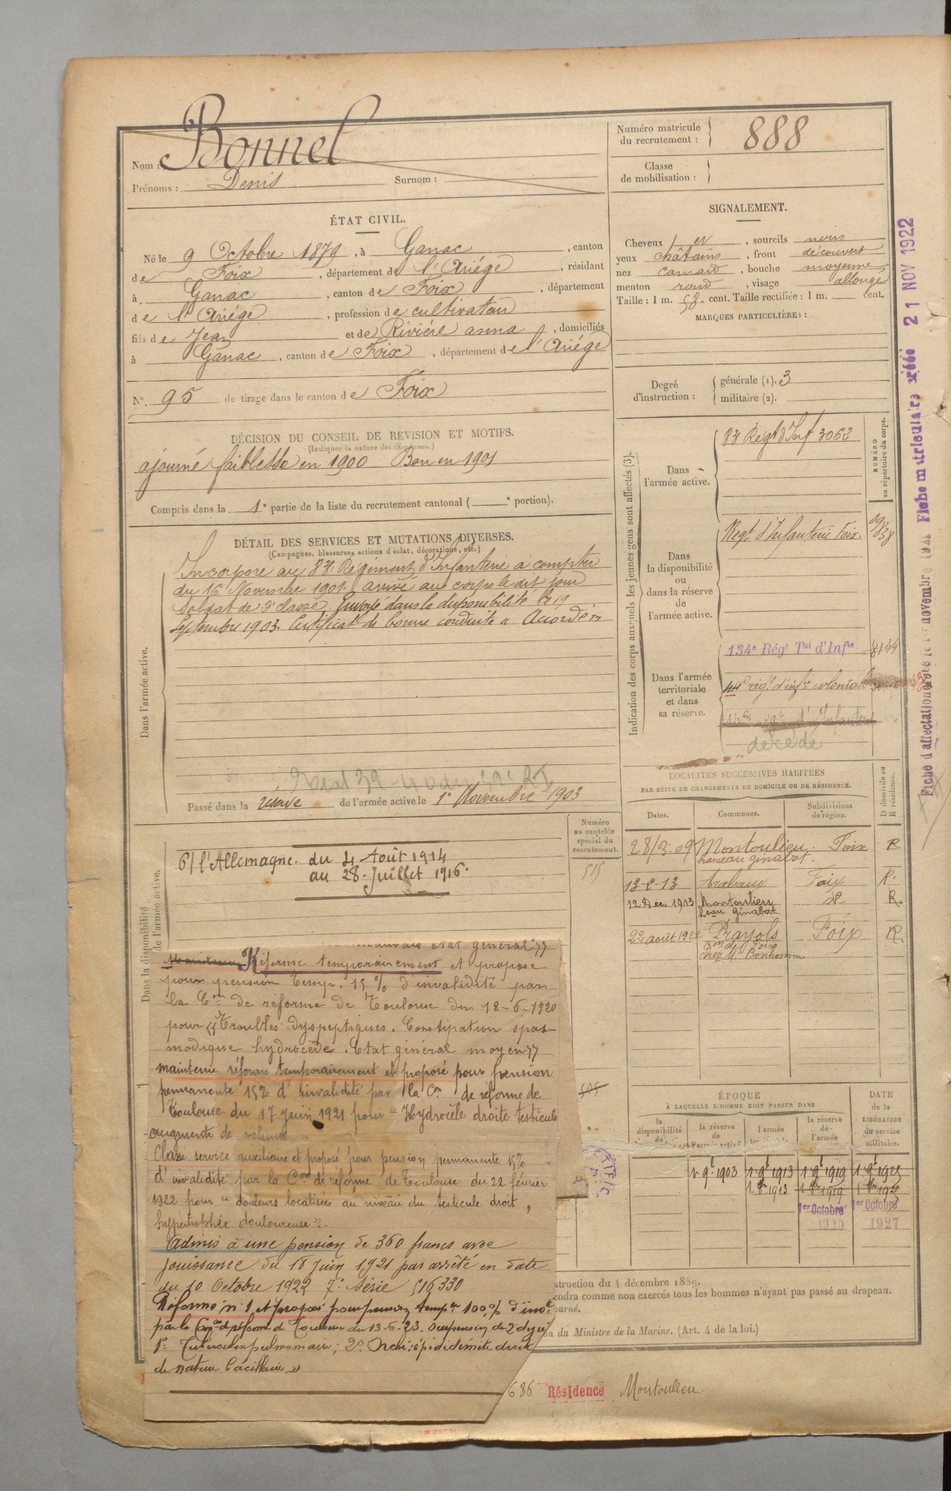 Nom : Bonnel
Prénoms : Denis Surnom :
Numéro matricule du recrutement : 888
Classe de mobilisation :
ÉTAT CIVIL.
Né le 9 Octobre 1879, à Ganac, canton
de Foix, département de l'Ariége, résidant
à Ganac, canton de Foix, département
de l'Ariége, profession de cultivateur
fils de Jean et de Rivière anna, domiciliés
à Ganac, canton de Foix, département de l'Ariége
N° 95 de tirage dans le canton de Foix
SIGNALEMENT.
Cheveux et, sourcils noirs
yeux châtains, front découvert
nez camard, bouche moyenne
menton rond, visage allongé
Taille : 1 m. 58 cent. Taille rectifiée : 1 m. cent.
MARQUES PARTICULIÈRES :
Degré d'instruction : générale (1). 3
militaire (2).
DÉCISION DU CONSEIL DE REVISION ET MOTIFS.
(Indiquer la nature des dispenses.)
ajourné faiblesse en 1900 Bon en 1901
Compris dans la 1e partie de la liste du recrutement cantonal ( e portion).
DÉTAIL DES SERVICES ET MUTATIONS DIVERSES.
(Campagnes, blessures, actions d'éclat, décorations, etc.)
Dans l'armée active.
Incorporé au 83e Régiment d'Infanterie à compter
du 16 Novembre 1901 arrivé au corps le dit jour
Soldat de 2e classe. Envoyé dans la disponibilité le 19
Septembre 1903. Certificat de bonne conduite "Accordé"
Passé dans la réserve de l'armée active le 1er Novembre 1903
Indication des corps auxquels les jeunes gens sont affectés (3).
NUMÉRO au répertoire du corps.
Dans l'armée active.
83 Régt d'Inf 3062
Dans la disponibilité ou dans la réserve de l'armée active.
Régt d'Infanterie Foix
Dans l'armée territoriale et dans sa réserve.
134e Régt Tal d'Infie 8144
44e régt d'infie coloniale
décédé
LOCALITÉS SUCCESSIVES HABITÉES
PAR SUITE DE CHANGEMENTS DE DOMICILE OU DE RÉSIDENCE.
Dates. Communes. Subdivisions de région. D domicile ou R résidence.
Montoulieu Foix R
hameau ginabat.
Foix R
12 Dec. 1913 Montoulieu d° R.
hau ginabat
Prayols Foix R
chez Mr Bonhomme
Numéro au contrôle spécial du recrutement.
515
Dans la disponibilité
de l'armée active.
C/ l'Allemagne. du 4 Août 1914
au 28 Juillet 1916.
mauvais état général"
Réformé temporairement et proposé
pour pension temp. 15 % d'invalidité par
la Con de réforme de Toulouse du 18-6-1920
pour "Troubles dyspeptiques. Constipation spas-
modique hydrocèle. Etat général moyen"
maintenu réformé temporairement et proposé pour pension
permanente 15% d'invalidité par la Con de réforme de
Toulouse du 17 juin 1921 pour "Hydrocèle droite testicule
augmenté de volume
Classé service auxiliaire et proposé pour pension permanente 15%
d'invalidité par la Con de réforme de Toulouse du 22 février
1922 pour "douleurs localisées au niveau du testicule droit,
hypertrophie douloureuse".
Admis à une pension de 360 francs avec
jouissance du 18 juin 1921 par arrêté en date
du 10 Octobre 1922 7e Série 516330
Réformé n° 1 et proposé pour pension tempre 100% d'inv.
par la Con de réforme de Toulouse du 13-6-23.
1° Tuberculose pulmonaire; 2° Orchi-épididimite droite
de nature bacillaire"
ÉPOQUE
À LAQUELLE L'HOMME DOIT PASSER DANS
la disponibilité de la réserve de l'armée la réserve de l'armée
DATE de la LIBÉRATION du service militaire.
1er 9bre 1903 1er 9bre 1913 1er 9bre 1919 1er 9bre 1925
1er Octobre 1920 1er Octobre 1927
struction du 4 décembre 1889.
endra comme non exercés tous les hommes n'ayant pas passé au drapeau.
ourné.
on du Ministre de la Marine. (Art. 4 de la loi.)
686 Résidence Montoulieu
Fiche matriculaire créée 21 NOV 1922
Fiche d'affectation